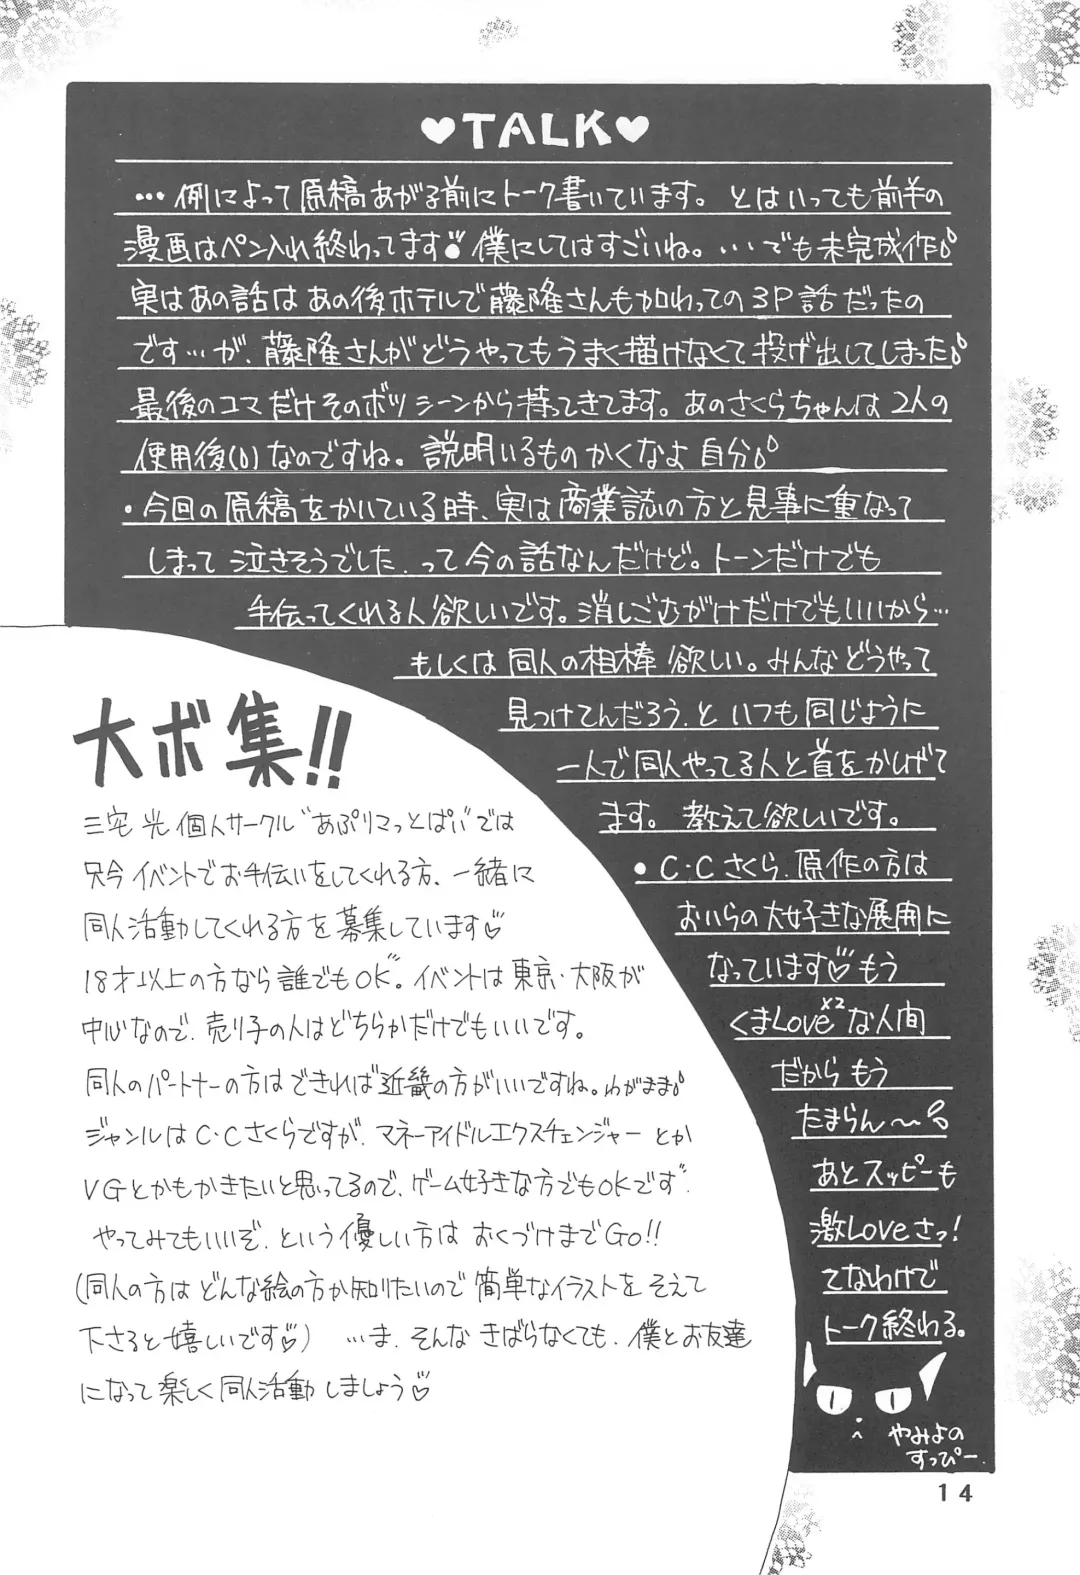 ♥TALK♥
…例によって原稿あがる前にトーク書いています。とはいっても前半の
漫画はペン入れ終わってます 僕にしてはすごいね。…でも未完成作
・今回の原稿をかいている時、実は商業誌の方と見事に重なって
しまって泣きそうでした、って今の話なんだけど。トーンだけでも
手伝ってくれる人欲しいです。消しごむがけだけでもいいから…
もしくは同人の相棒欲しい。みんなどうやって
見つけてんだろう、といつも同じように
一人で同人やってる人と首をかしげて
ます。教えて欲しいです。
・C・Cさくら、原作の方は
おいらの大好きな展開に
なっています♡もう
くまLove×2な人間
だからもう
たまらん～
あとスッピーも
激Loveさっ!
てなわけで
トーク終わる。
やみよの
すっぴー.
大ボ集!!
三宅 光 個人サークル“あぷりまっとぱい”では
只今イベントでお手伝いをしてくれる方、一緒に
同人活動してくれる方を募集しています♡
18才以上の方なら誰でもOK。イベントは東京・大阪が
中心なので、売り子の人はどちらかだけでもいいです。
同人のパートナーの方はできれば近畿の方がいいですね。わがまま
ジャンルはC・Cさくらですが、マネーアイドルエクスチェンジャーとか
VGとかもかきたいと思ってるので、ゲーム好きな方でもOKです
やってみてもいいぞ、という優しい方はおくづけまでGo!!
(同人の方はどんな絵の方か知りたいので簡単なイラストをそえて
下さると嬉しいです♡) …ま、そんなきばらなくても、僕とお友達
になって楽しく同人活動しましょう♡
14